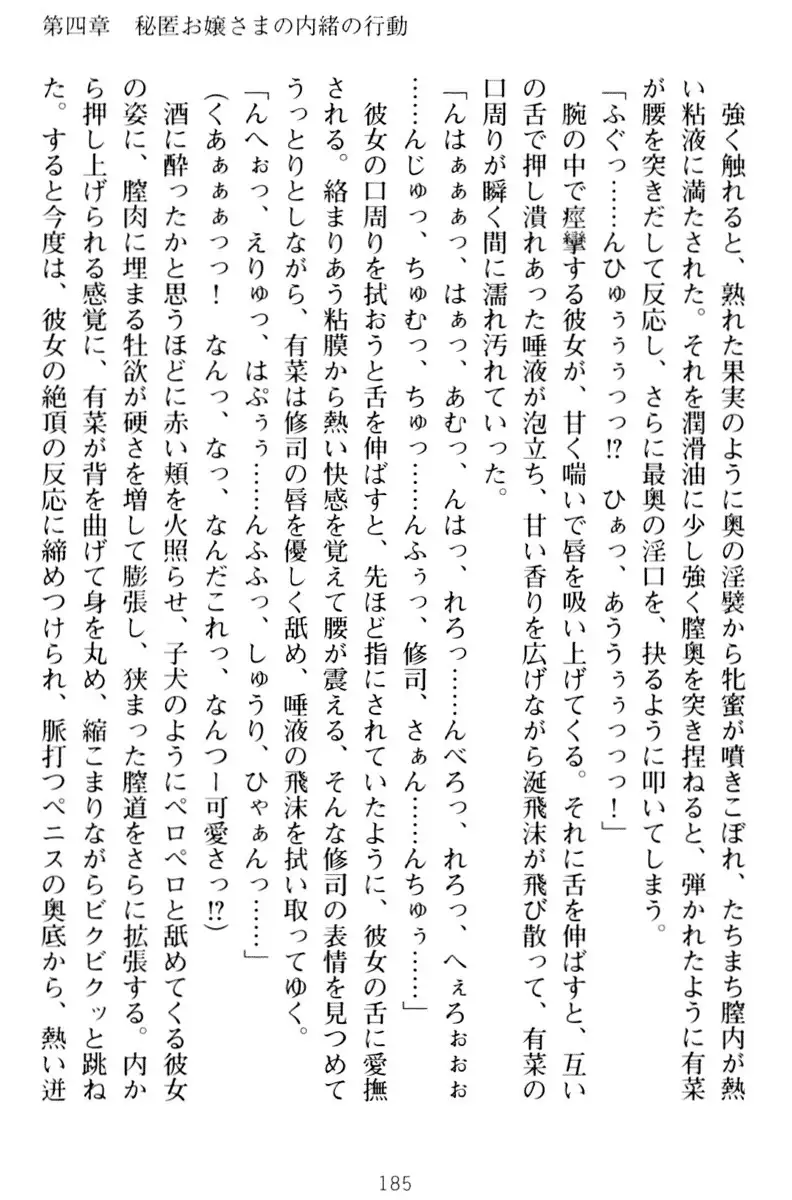 第四章　秘匿お嬢さまの内緒の行動
強く触れると、熟れた果実のように奥の淫襞から牝蜜が噴きこぼれ、たちまち膣内が熱
い粘液に満たされた。それを潤滑油に少し強く膣奥を突き捏ねると、弾かれたように有菜
が腰を突きだして反応し、さらに最奥の淫口を、抉るように叩いてしまう。
「ふぐっ……んひゅぅぅぅっっ!?　ひぁっ、あううぅぅっっっ！」
腕の中で痙攣する彼女が、甘く喘いで唇を吸い上げてくる。それに舌を伸ばすと、互い
の舌で押し潰れあった唾液が泡立ち、甘い香りを広げながら涎飛沫が飛び散って、有菜の
口周りが瞬く間に濡れ汚れていった。
「んはぁぁぁっ、はぁっ、あむっ、んはっ、れろっ……んべろっ、れろっ、へぇろぉぉぉ
……んじゅっ、ちゅむっ、ちゅっ……んふぅっ、修司、さぁん……んちゅぅ……」
彼女の口周りを拭おうと舌を伸ばすと、先ほど指にされていたように、彼女の舌に愛撫
される。絡まりあう粘膜から熱い快感を覚えて腰が震える、そんな修司の表情を見つめて
うっとりとしながら、有菜は修司の唇を優しく舐め、唾液の飛沫を拭い取ってゆく。
「んへぉっ、えりゅっ、はぷぅぅ……んふふっ、しゅうり、ひゃぁんっ……」
（くあぁぁぁっっ！　なんっ、なっ、なんだこれっ、なんつー可愛さっ!?）
酒に酔ったかと思うほどに赤い頬を火照らせ、子犬のようにペロペロと舐めてくる彼女
の姿に、膣肉に埋まる牡欲が硬さを増して膨張し、狭まった膣道をさらに拡張する。内か
ら押し上げられる感覚に、有菜が背を曲げて身を丸め、縮こまりながらビクビクッと跳ね
た。すると今度は、彼女の絶頂の反応に締めつけられ、脈打つペニスの奥底から、熱い迸
185